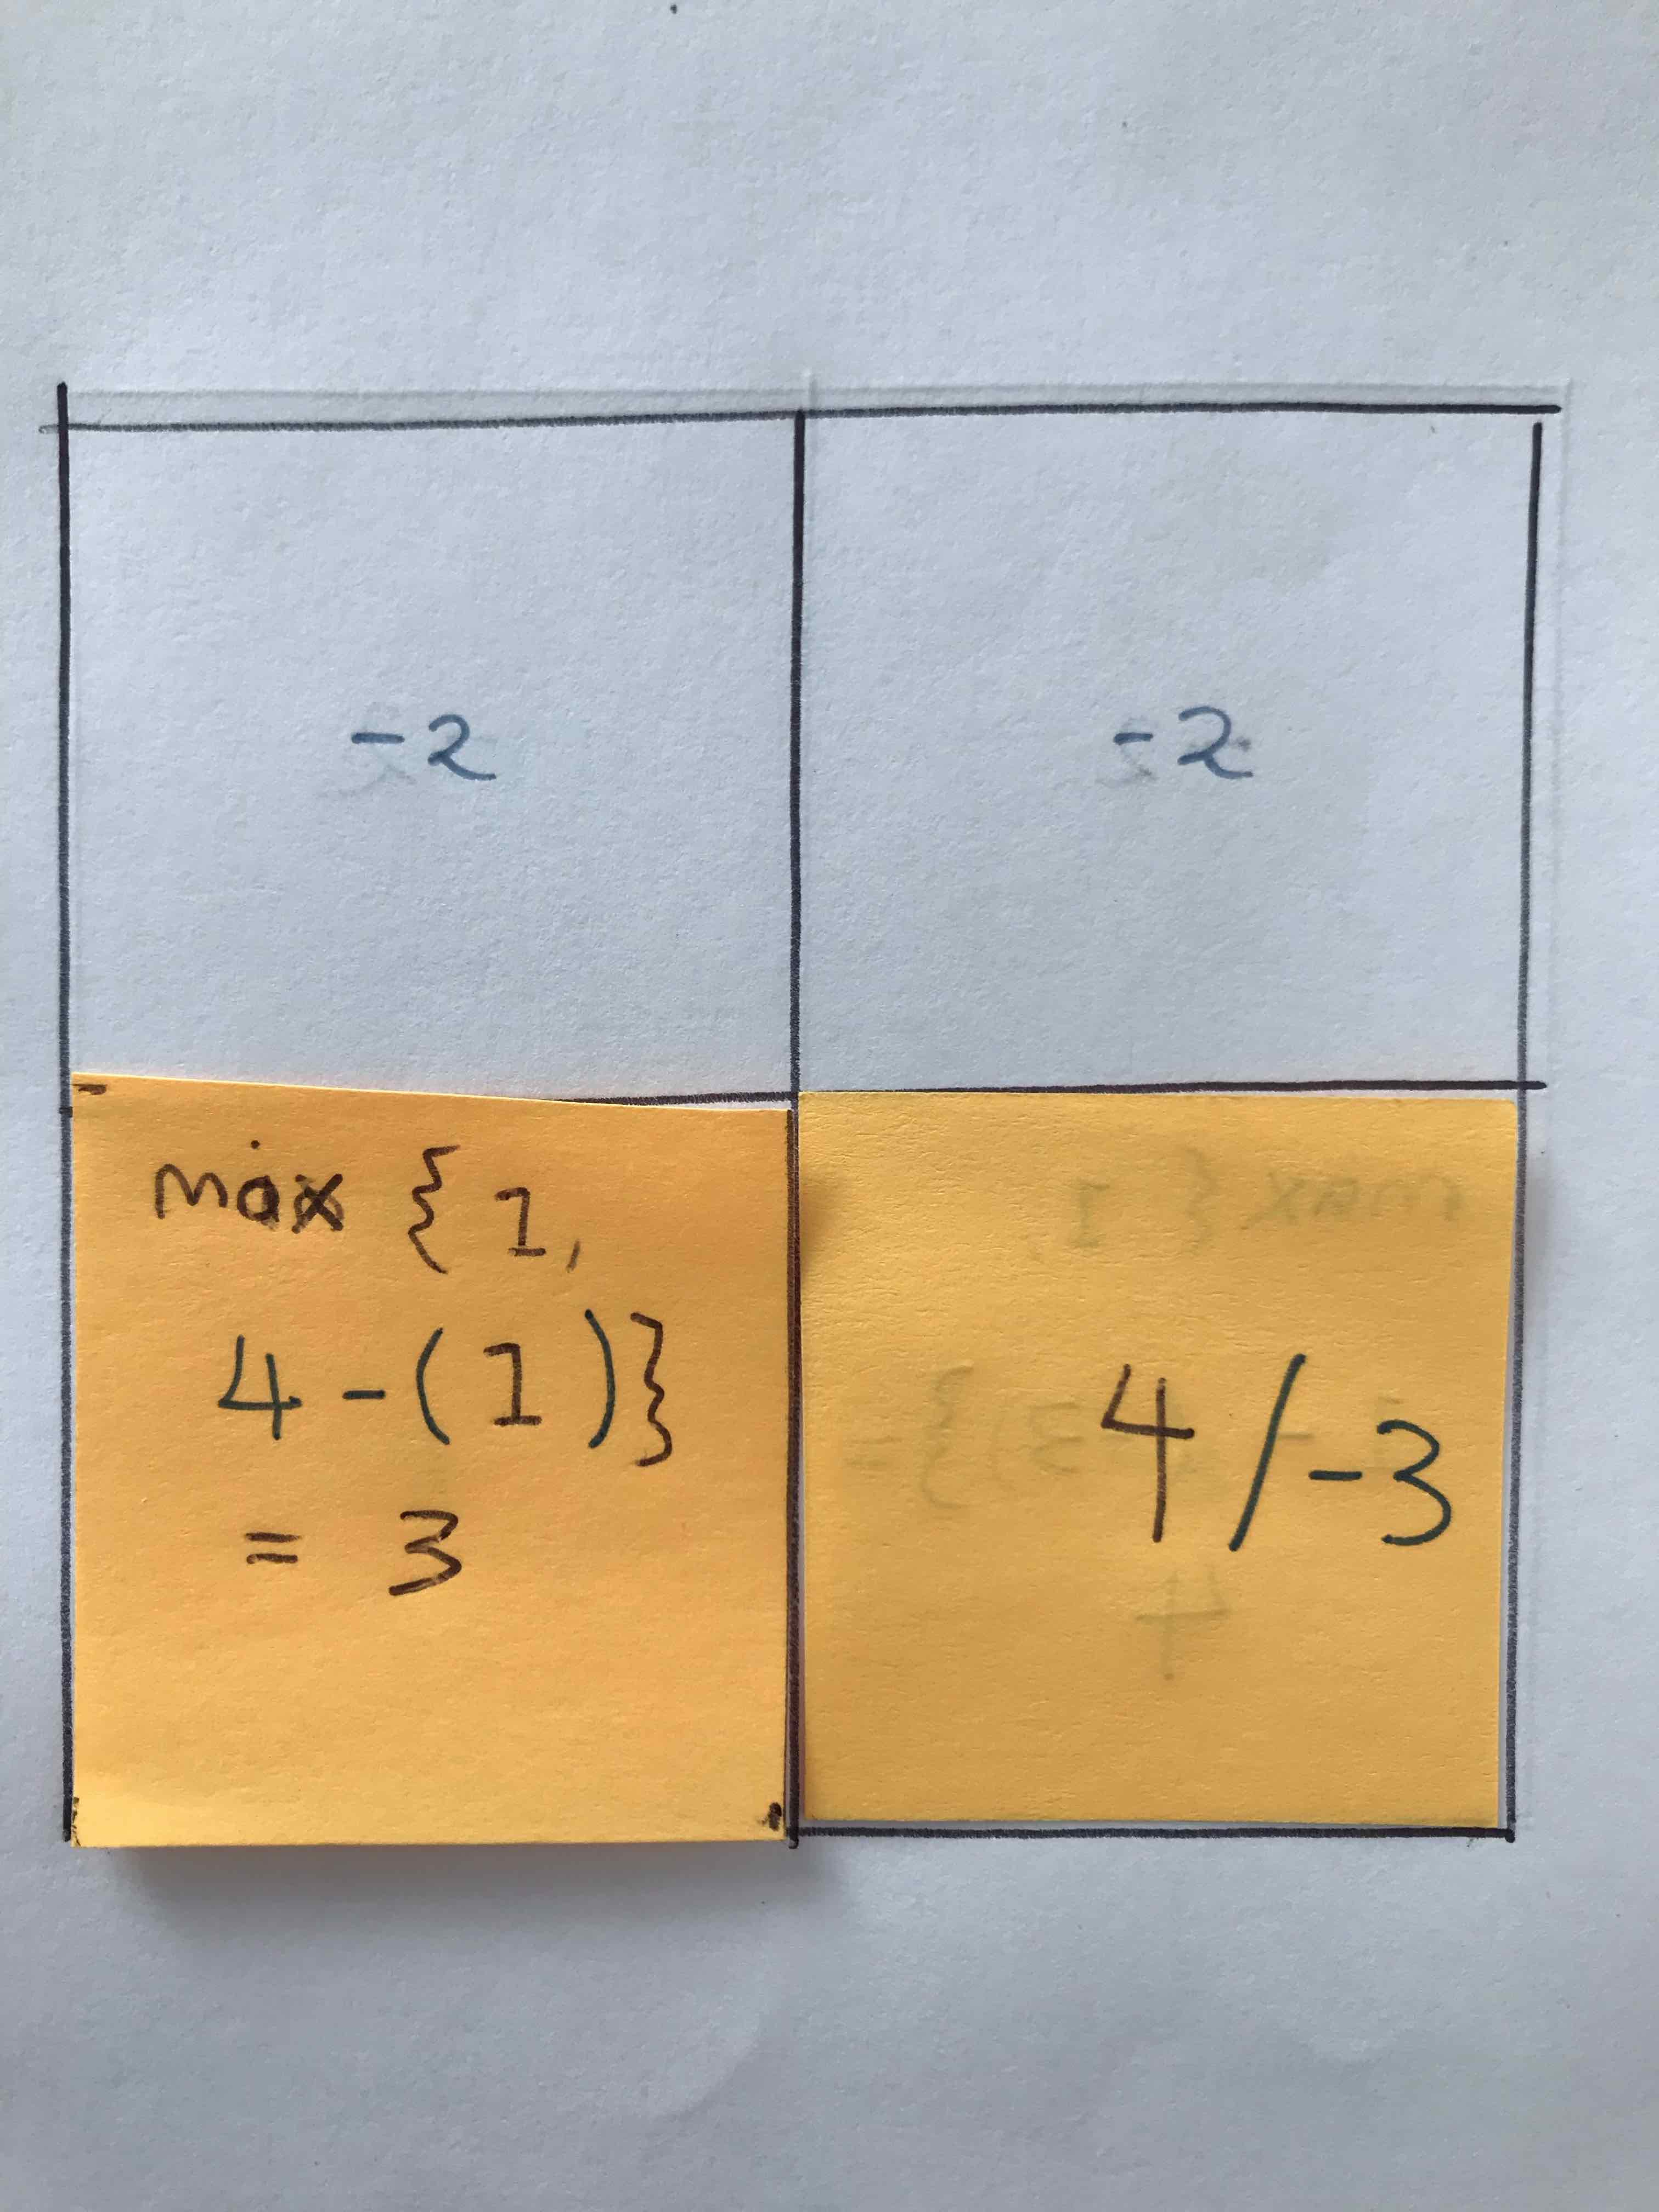 -2
-2
max { 1,
4 - ( 1 ) }
= 3
4 / -3